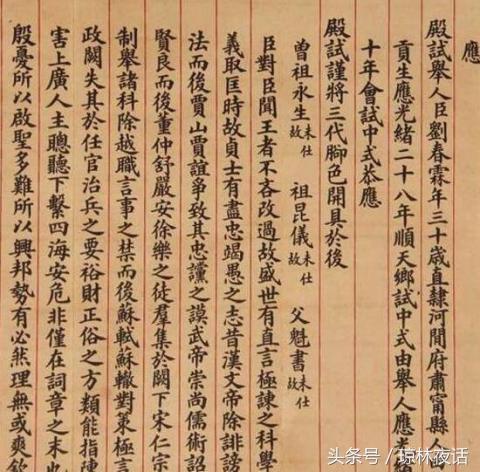 應
殿試舉人臣劉春霖年三十歲直隸河間府肅甯縣人
貢生應光緒二十八年順天鄉試中式由舉人應光
十年會試中式恭應
殿試謹將三代腳色開具於後
曾祖永生未仕故 祖昆儀未仕故 父魁書未仕故
臣對臣聞王者不吝改過故盛世有直言極諫之科學
義取匡時故貞士有盡忠竭愚之志昔漢文帝除誹謗
法而後賈山賈誼爭致其忠讜之謨武帝崇尚儒術詔
賢良而後董仲舒嚴安徐樂之徒羣集於闕下宋仁宗
制舉諸科除越職言事之禁而後蘇軾蘇轍對策極言
政闕失其於任官治兵之要裕財正俗之方類能指陳
害上廣人主聰聽下繫四海安危非僅在詞章之末也
殷憂所以啟聖多難所以興邦勢有必然理無或爽欽
头条号 / 琼林夜话